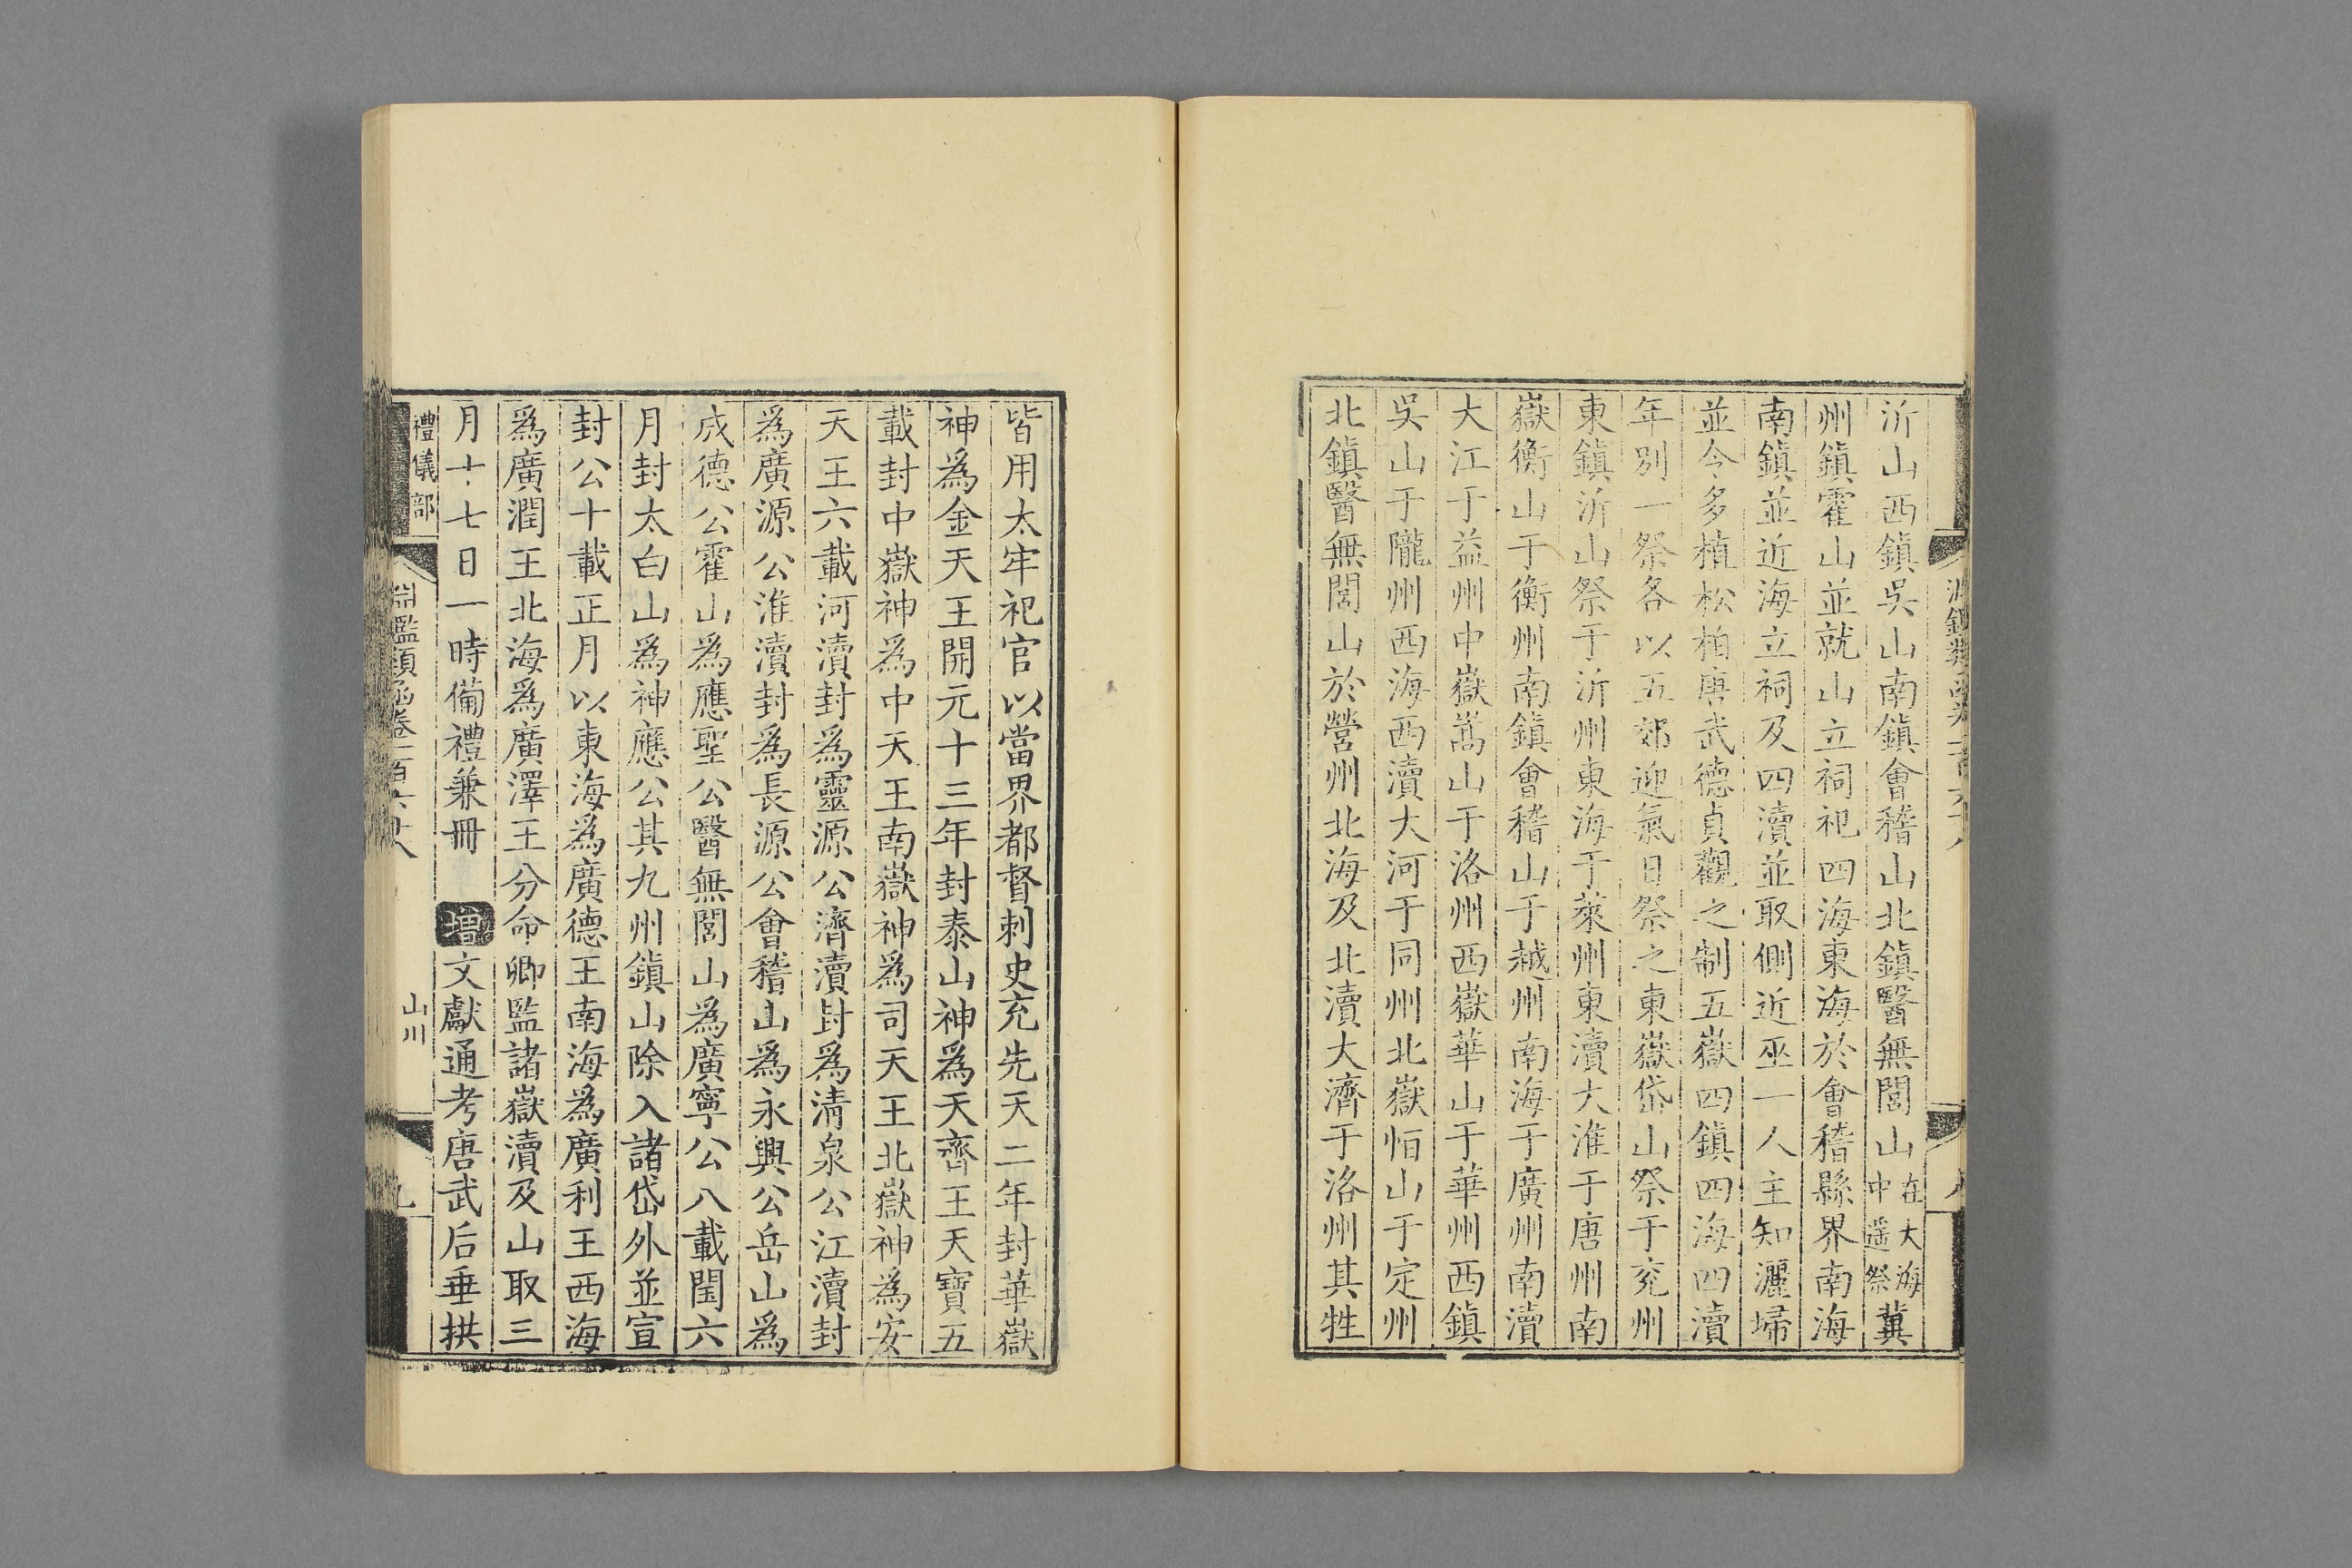 沂山西鎮吳山南鎮會稽山北鎮醫無閭山在大海中遥祭冀
州鎮霍山並就山立祠祀四海東海於會稽縣界南海
南鎮並近海立祠及四瀆並取側近巫一人主知灑埽
並今多植松柏唐武德貞觀之制五嶽四鎮四海四瀆
年別一祭各以五郊迎氣日祭之東嶽岱山祭于兖州
東鎮沂山祭于沂州東海于萊州東瀆大淮于唐州南
嶽衡山于衡州南鎮會稽山于越州南海于廣州南瀆
大江于益州中嶽嵩山于洛州西嶽華山于華州西鎮
吳山于隴州西海西瀆大河于同州北嶽恒山于定州
北鎮醫無閭山於營州北海及北瀆大濟于洛州其牲
皆用太牢祀官以當界都督刺史充先天二年封華嶽
神爲金天王開元十三年封泰山神爲天齊王天寶五
載封中嶽神爲中天王南嶽神爲司天王北嶽神爲安
天王六載河瀆封爲靈源公濟瀆封爲清泉公江瀆封
爲廣源公淮瀆封爲長源公會稽山爲永興公岳山爲
成德公霍山爲應聖公醫無閭山爲廣寧公八載閏六
月封太白山爲神應公其九州鎮山除入諸岱外並宣
封公十載正月以東海爲廣德王南海爲廣利王西海
爲廣潤王北海爲廣澤王分命卿監諸嶽瀆及山取三
月十七日一時備禮兼冊 增文獻通考唐武后垂拱
禮儀部
淵鑑類函卷一百六十八
山川
九